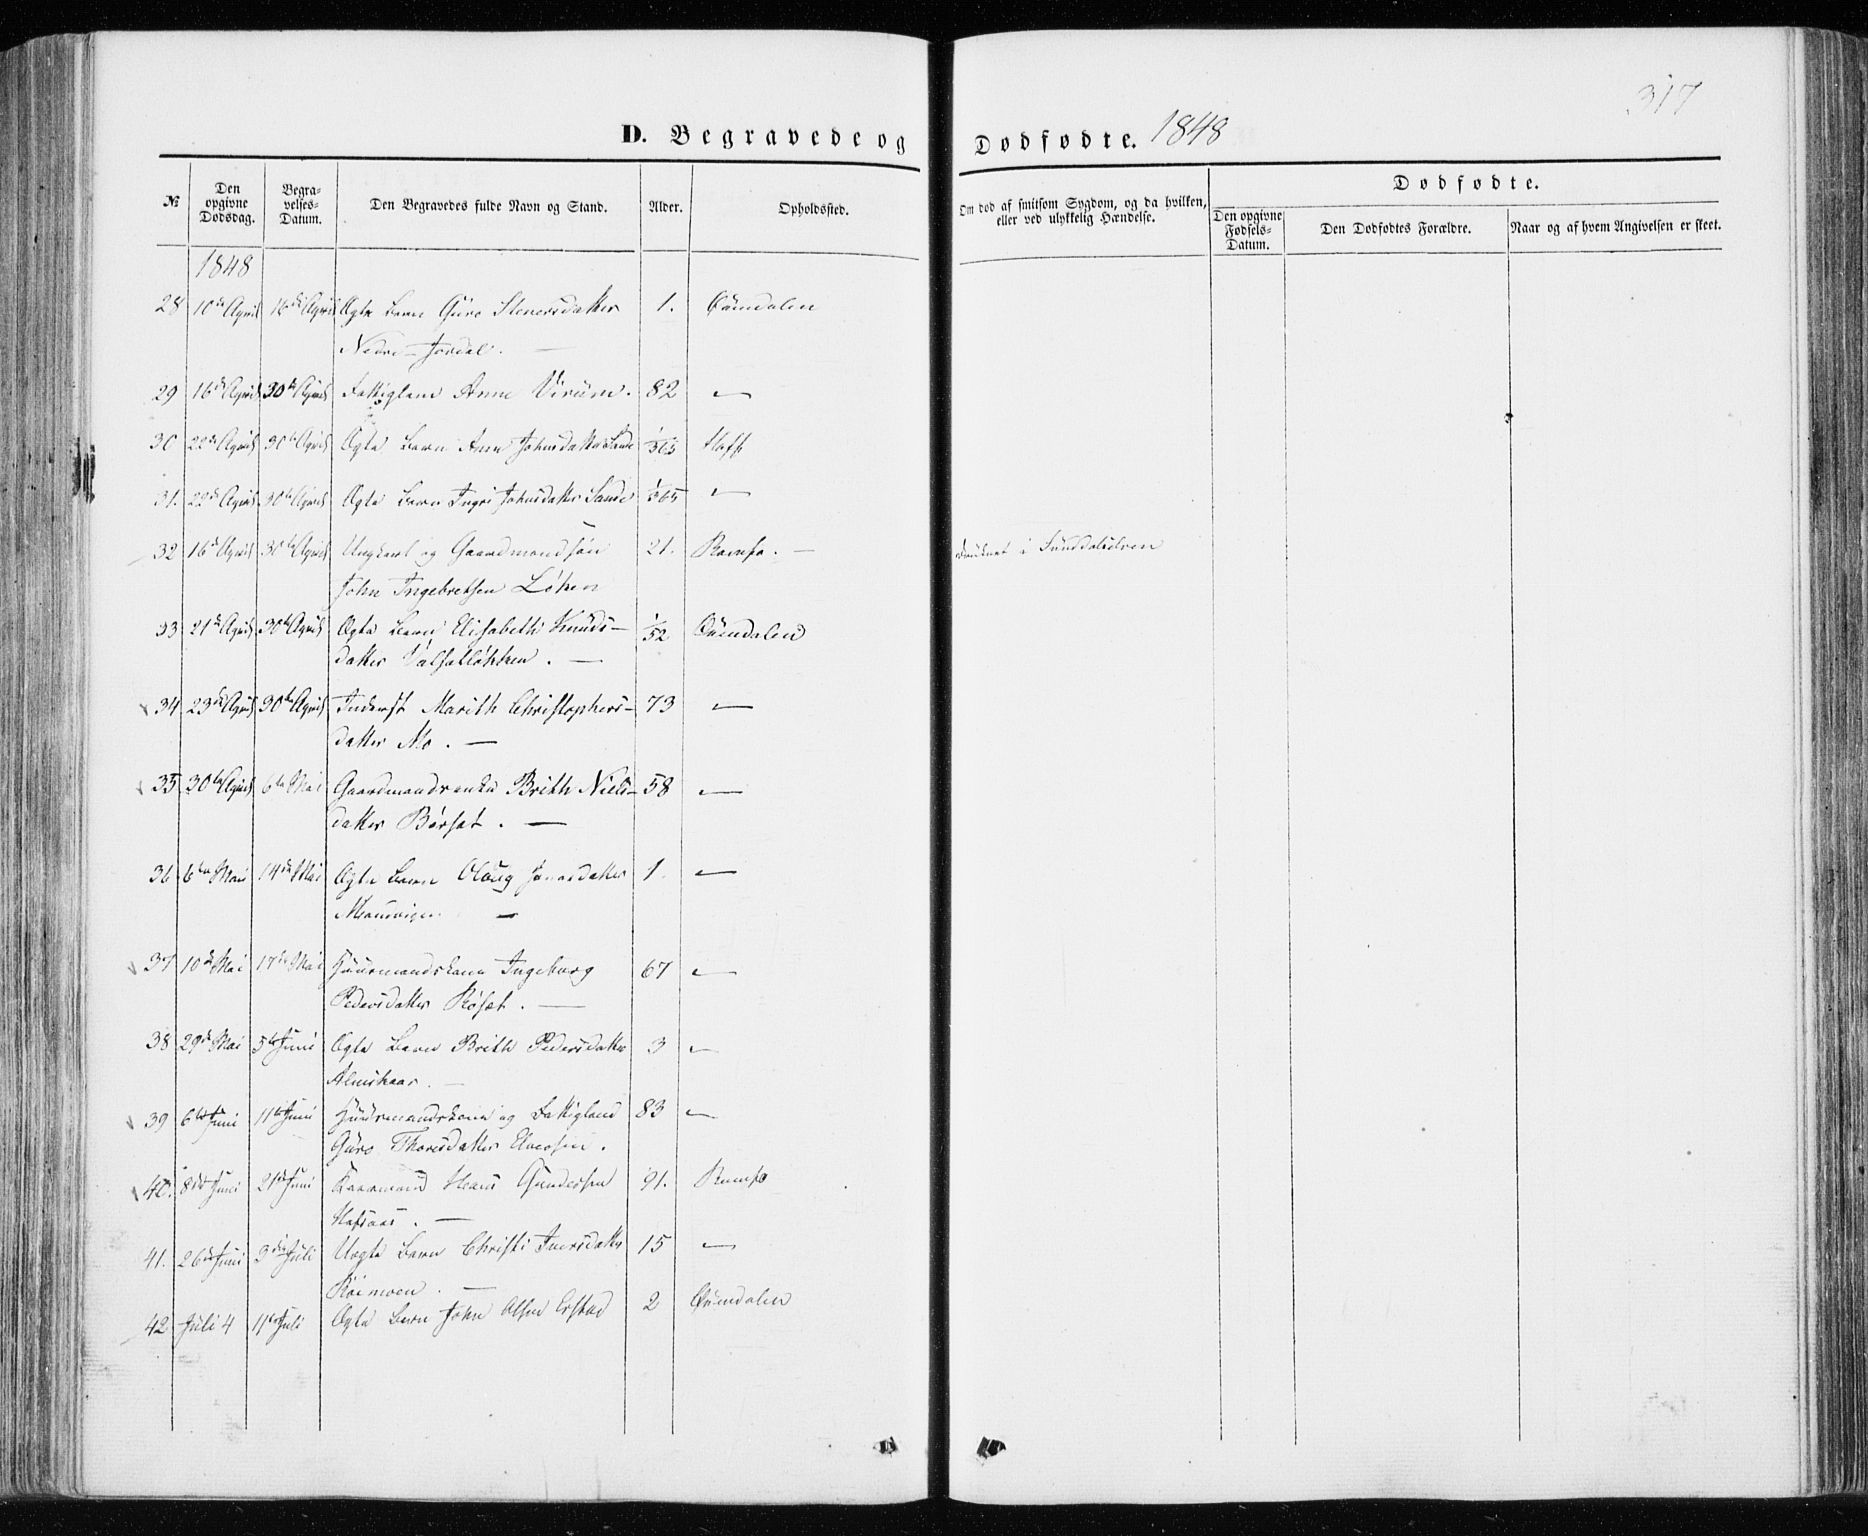 317
D. Begravede og Dødfødte. 1848
№
Den opgivne Dødsdag.
Begravelses-Datum.
Den Begravedes fulde Navn og Stand.
Alder.
Opholdssted.
Om død af smitsom Sygdom, og da hvilken, eller ved ulykkelig Hændelse.
Dødfødte.
Den opgivne Fødsels-Datum.
Den Dødfødtes Forældre.
Naar og af hvem Angivelsen er skeet.
1848
28 10de April 16de April Ægte Barn Guro Siversdatter 1. Øxendalen
Nedre-Jordal. —
29 16de April 30te April Fattiglem Anne Virum. 82 —
30 22de April 30te April Ægte Barn Ane Johnsdatter Sande 1/365 Hoff
31. 22de April 30te April Ægte Barn Ingri Johnsdatter Sande 1/365 —
32 16de April 30te April Ungkarl og Gaardmandssøn 21. Romfo. — druknet i Sunddalselven
John Ingebretsen Løken
33 21de April 30te April Ægte Barn Elisabeth Knuds- 1/52 Øxendalen
datter . —
34 23de April 30te April Inderst Marith Christophers- 73 —
datter Mo. —
35 30te April 6te Mai Gaardmandsenke Brith Niels- 58 —
datter Børset. —
36 6te Mai 14de Mai Ægte Barn Oloug datter 1. —
—
37 10de Mai 17de Mai Huusmandskone Ingeborg 67 —
Pedersdatter Røset. —
38 29de Mai 5te Juni Ægte Barn Brith Pedersdatter 3 —
Almskaar. —
39 6te Juni 11te Juni Huusmandskone og Fattiglem 83 —
Guro Thoresdatter .
40. 8de Juni 21de Juni Kaarmand Hans Gundersen 91. Romfo
Hafsaas. —
41. 26de Juni 3die Juli Uægte Barn Christi Iversdatter 15 —
Røimoen. —
42 Juli 4 11te Juli Ægte Barn John Olsen Erstad 2 Øxendalen